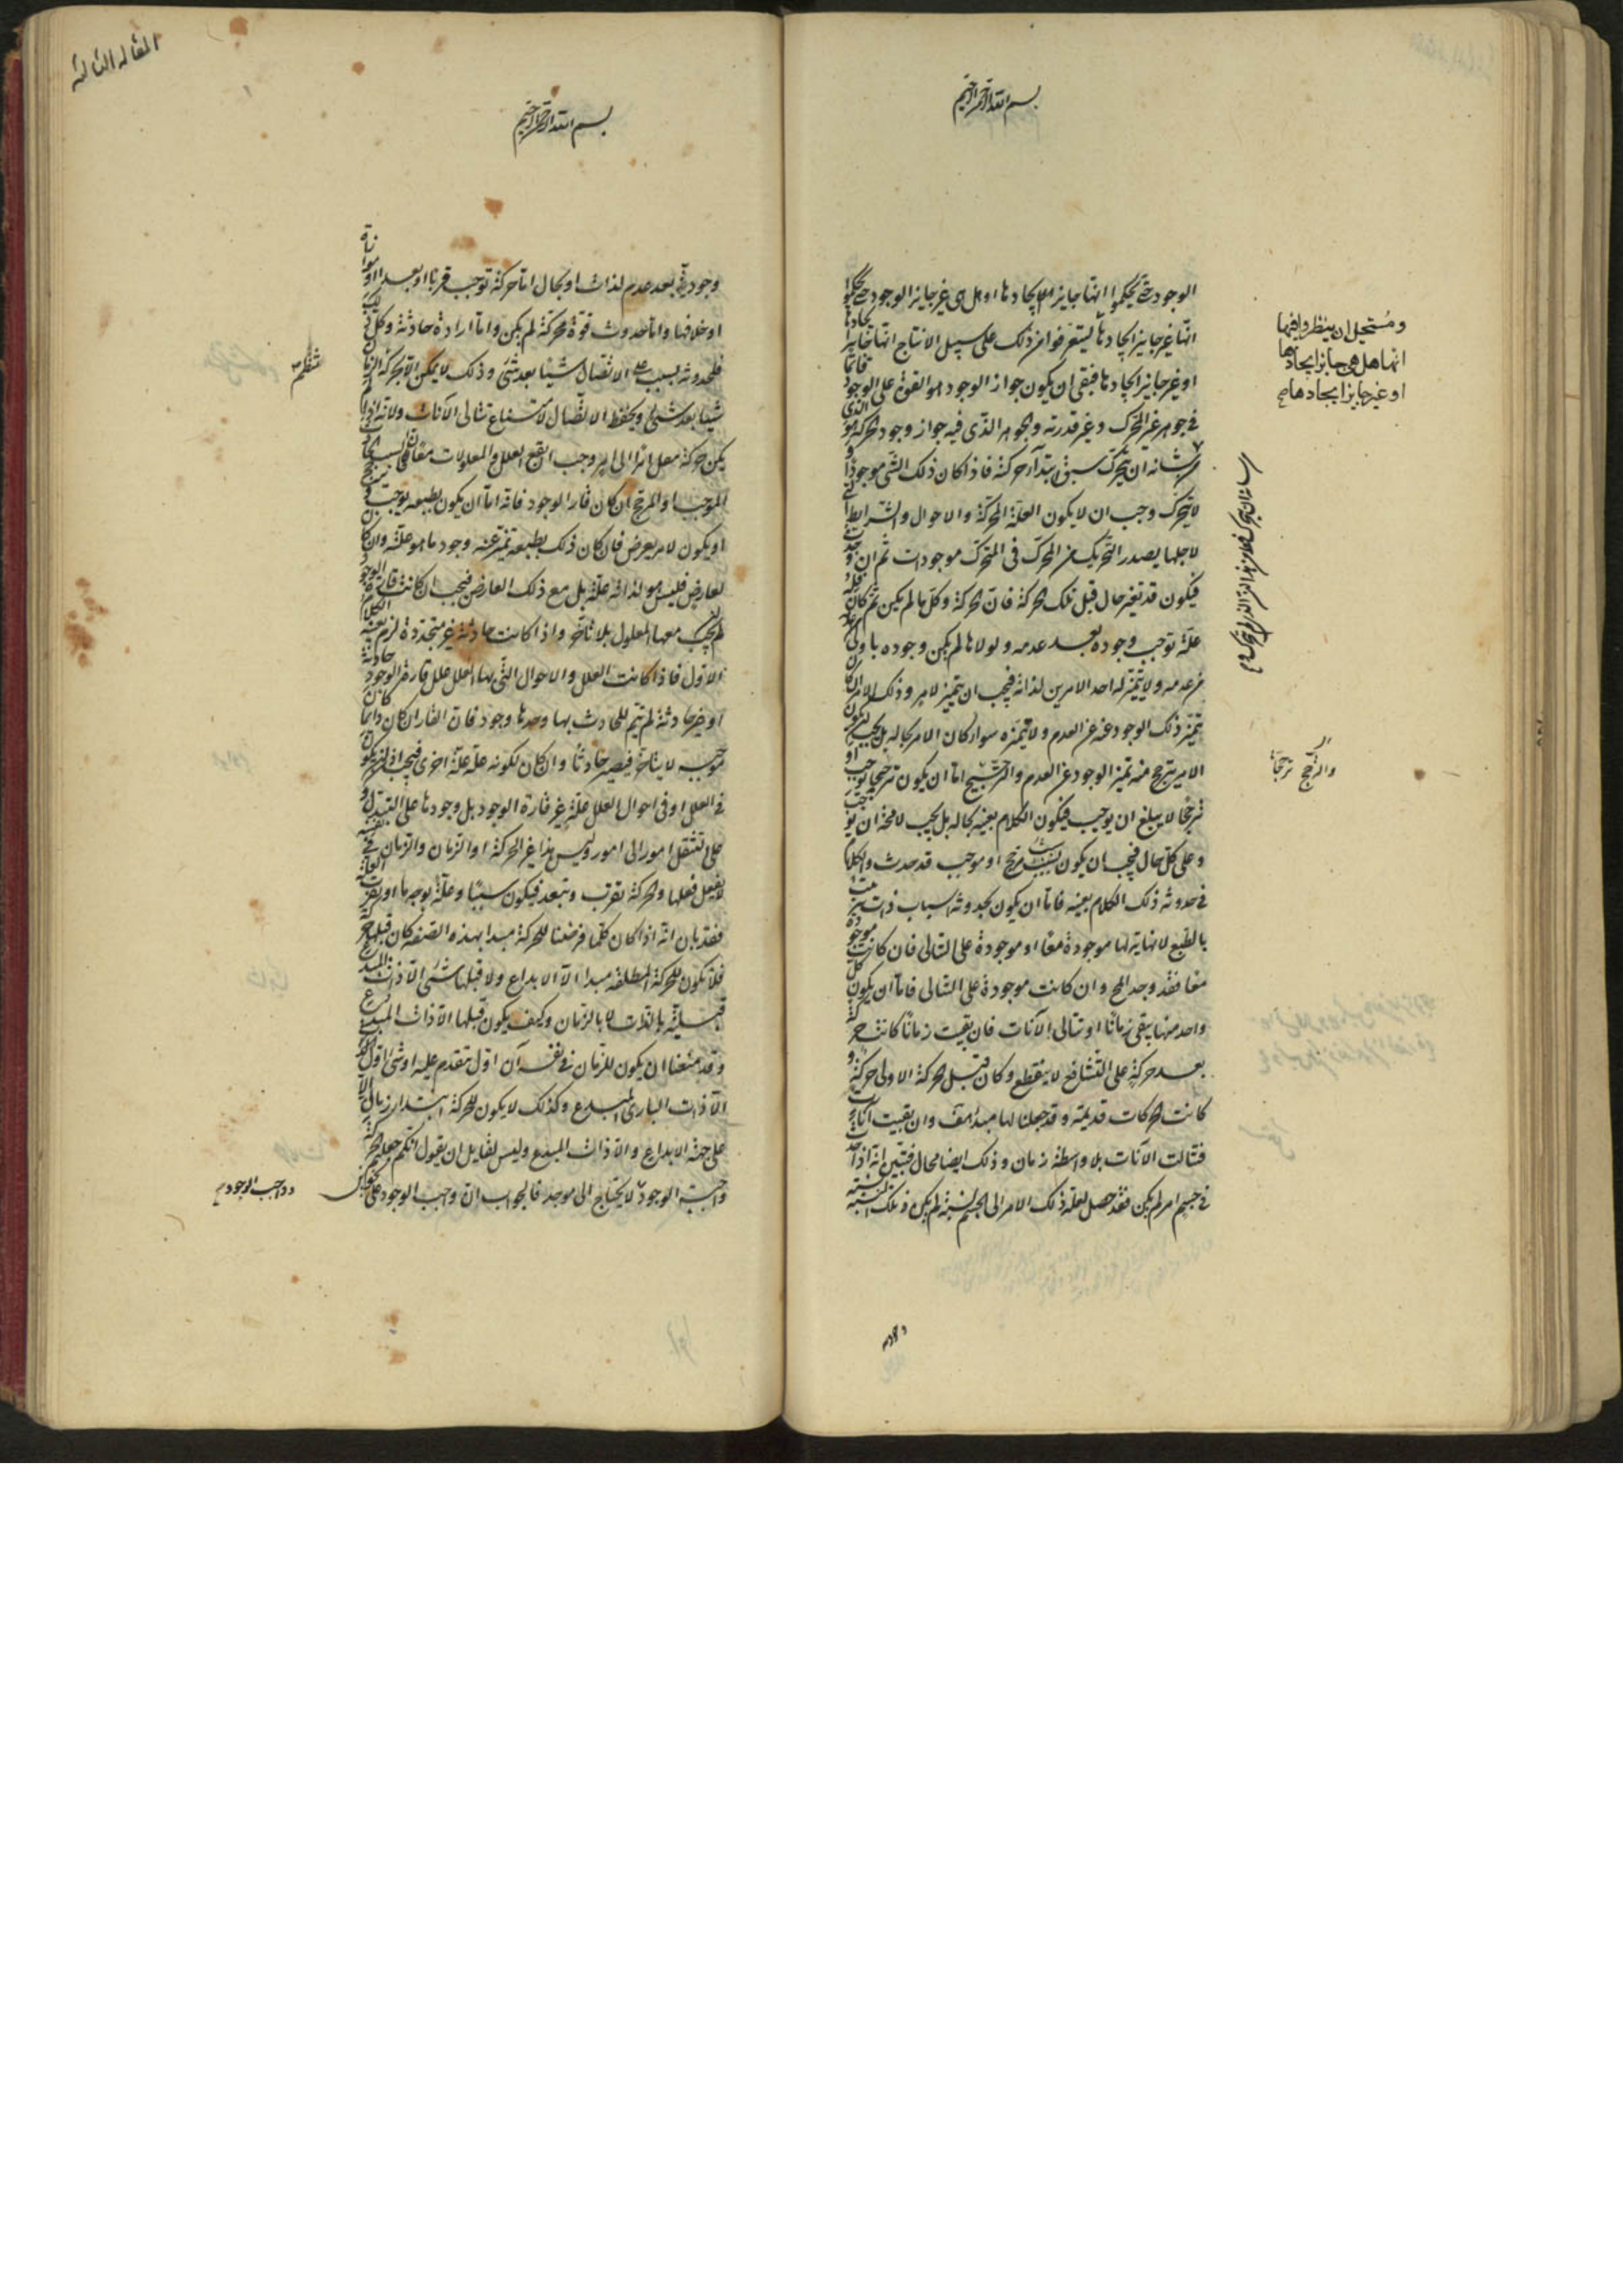 بسم الله الرحمن الرحيم
الوجود حتى يحكموا انها جايز الايجادها او هل هى غير جايز الوجود حتى يحكموا
انها غير جايز ايجادها ليتعرفوا من ذلك على سبيل الانتاج انها جايز ايجادها
او غير جايز ايجادها فبقى ان يكون جواز الوجود هو القوة على الوجود فاما
فى جوهر غير المحرك وغير قدرته والجوهر الذى فيه جواز وجود الحركة هو الذى
من شانه ان يتحرك سبق ابتداء حركة فاذا كان ذلك الشى موجودا و
لا يتحرك وجب ان لا يكون العلة المحركة والاحوال والشرايط التى
لاجلها يصدر التحريك من المحرك فى المتحرك موجودات ثم ان وجدت
فيكون قد تغير حال قبل تلك الحركة فان الحركة وكل ما لم يكن ثم كان فله
علة توجب وجوده بعد عدمه ولولاها لم يكن وجوده باولى
من عدمه ولا يتميز له احد الامرين لذاته فيجب ان يتميز لامر وذلك الامر ان كان
يتميز ذلك الوجود عنه عن العدم ولا تميزه سواء كان الامر بحاله بل يجب ان يكون
الامر يترجح منه تميز الوجود عن العدم والترجيح اما ان يكون ترجيحا يوجب او
ترجيحا لا يبلغ ان يوجب فيكون الكلام بعينه بحاله بل يجب لا محة ان يوجبه
وعلى كل حال فيجب ان يكون بسبب مرجح او موجب قد حدث والكلام
فى حدوثه ذلك الكلام بعينه فاما ان يكون لحدوثه اسباب ذات ترتيب
بالطبع لا نهاية لها موجودة معا او موجودة على التتالى فان كانت موجودة
معا فقد وجد المح وان كانت موجودة على التتالى فاما ان يكون كل
واحد منها يبقى زمانا او تتالى الآنات فان بقيت زمانا كانت حركة
بعد حركة على التشافع لا ينقطع وكان قبل الحركة الاولى حركة و
كانت الحركات قديمة وقد جعلنا لها مبدأ هف وان بقيت آنات
فتتالت الآنات بلا واسطة زمان وذلك ايضا محال فتبين انه اذا حدث
فى جسم امر لم يكن فقد حصل لعلة ذلك الامر الى الجسم نسبة لم يكن وتلك النسبة
ومستحيل ان ينظروا فيها
انها هل هى جايز ايجادها
او غير جايز ايجادها صح
والترجح ترجحا
المقالة الثالثة
بسم الله الرحمن الرحيم
وجودية بعد عدم لذات او بحال اما حركة توجب قربا او بعدا او موازاة
او خلافها واما حدوث قوة محركة لم يكن واما ارادة حادثة وكل ذلك
فلحدوثه بسبب على الاتصال شيئا بعد شى وذلك لا يمكن الا بحركة
شيا بعد شى ويحفظ الاتصال لامتناع تتالى الآنات ولانه اذا لم
يكن حركة مصل امرا الى امر وجب ان يقع العلل والمعلولات معا فان السبب
الموجب او المرجح ان كان قار الوجود فانه اما ان يكون بطبعه يوجب
او يكون لامر يعرض فان كان ذلك بطبعه تميز عنه وجود ما هو علته وان كان
لعارض فليس هو لذاته علة بل مع ذلك العارض فيجب ان كانت قارة الوجود
ان يجب معها المعلول بلا تاخر واذا كانت حادثة غير متجددة لزم الكلام بعينه
الاول فاذا كانت العلل والاحوال التى بها العلل علل قارة الوجود حادثة
او غير حادثة لم يتم للحادث بها وحدها وجود فان القار ان كان دايما كان
موجبه لا يتاخر فيصير حادثا وان كان لكونه علة علة اخرى فيجب اذا ان يكون
فى العلل او فى احوال العلل علة غير قارة الوجود بل وجودها على التبدل و
على تنقل امور الى امور وليس هذا غير الحركة او الزمان والزمان فى نفسه
لا يفعل فعلها والحركة تقرب وتبعد فيكون سببا وعلة بوجه ما اذ تقرب العلة
فقد بان انه اذا كان كلما فرضنا للحركة مبدا بهذه الصفة كان قبلها حركة
فلا يكون للحركة المطلقة مبدا الا الابداع ولا قبلها شى الا ذات المبدع
قبلية بالذات لا بالزمان وكيف يكون قبلها الا ذات المبدع
وقد منعنا ان يكون للزمان فى نفسه آن اول متقدم عليه او شى اول
الا ذات البارى المبدع وكذلك لا يكون للحركة ابتداء زمانى الا
على جهة الابداع والا ذات المبدع وليس لقايل ان يقول انكم جعلتم الحركة
واجبة الوجود لا يحتاج الى موجد فالجواب ان واجب الوجود على
وواجب الوجود صح